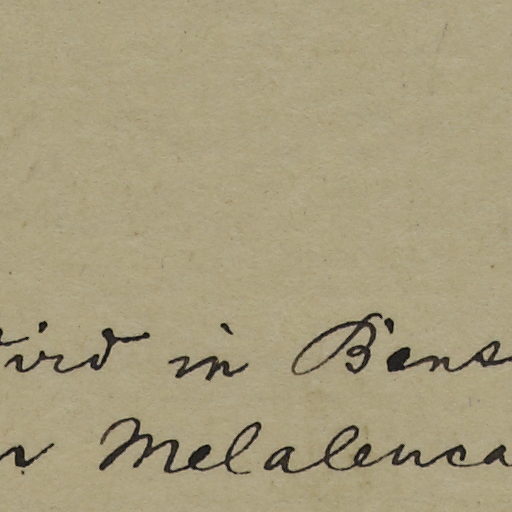 wird in Bens
r Melaleuca